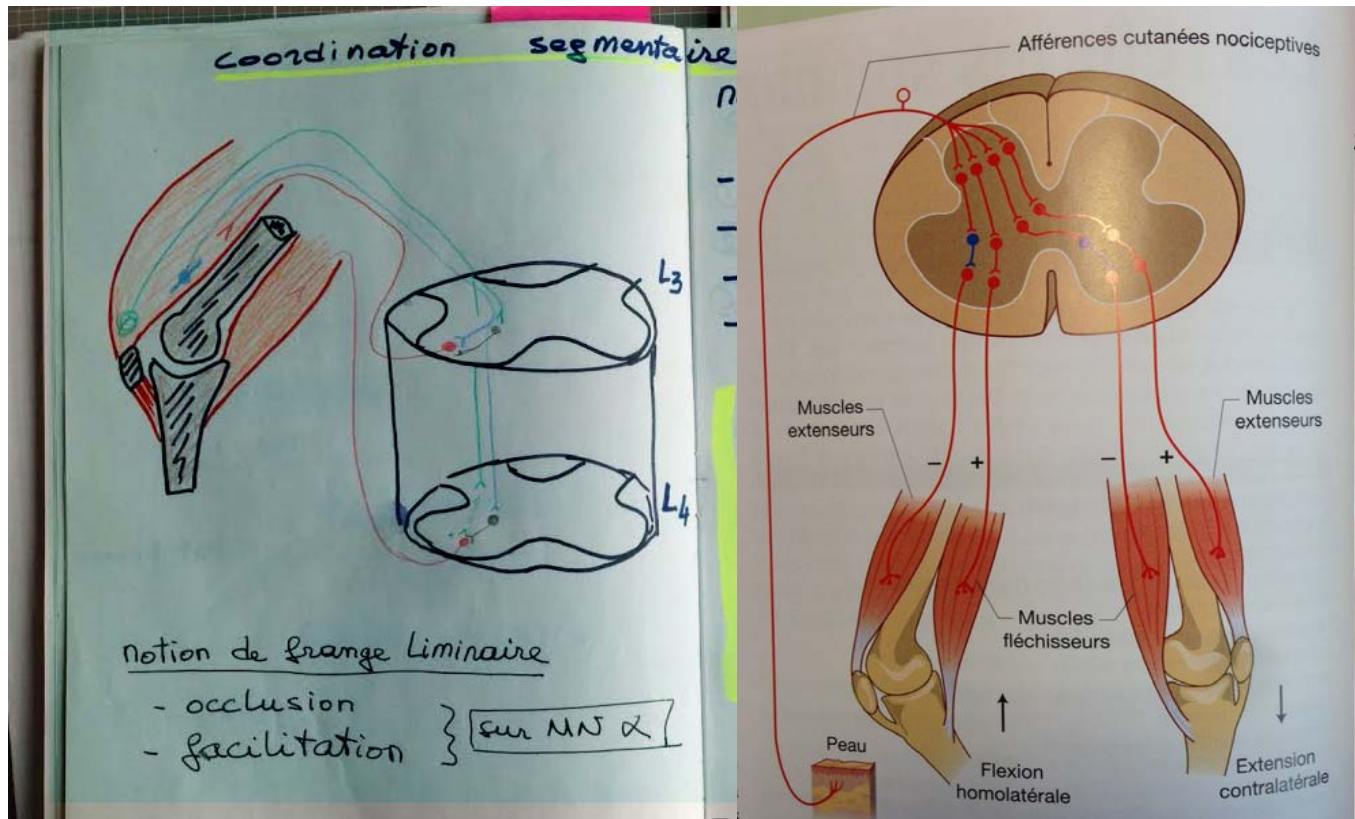 coordination segmentaire
L3
L4
notion de frange Liminaire
- occlusion
- facilitation
sur MN α
Afférences cutanées nociceptives
Muscles
extenseurs
Muscles
extenseurs
- +
- +
Muscles
fléchisseurs
Peau
Flexion
homolatérale
Extension
contralatérale